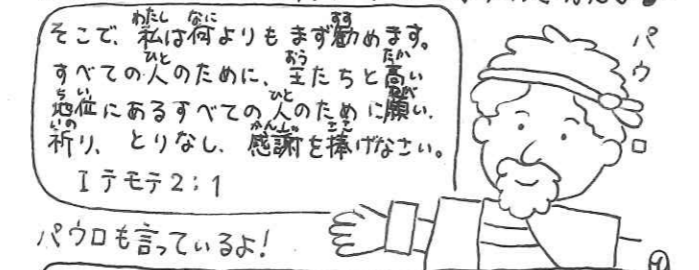 そこで、私は何よりもまず勧めます。
すべての人のために、王たちと高い
地位にあるすべての人のために願い、
祈り、とりなし、感謝を捧げなさい。
Ⅰテモテ2：1
パウロ
パウロも言っているよ！